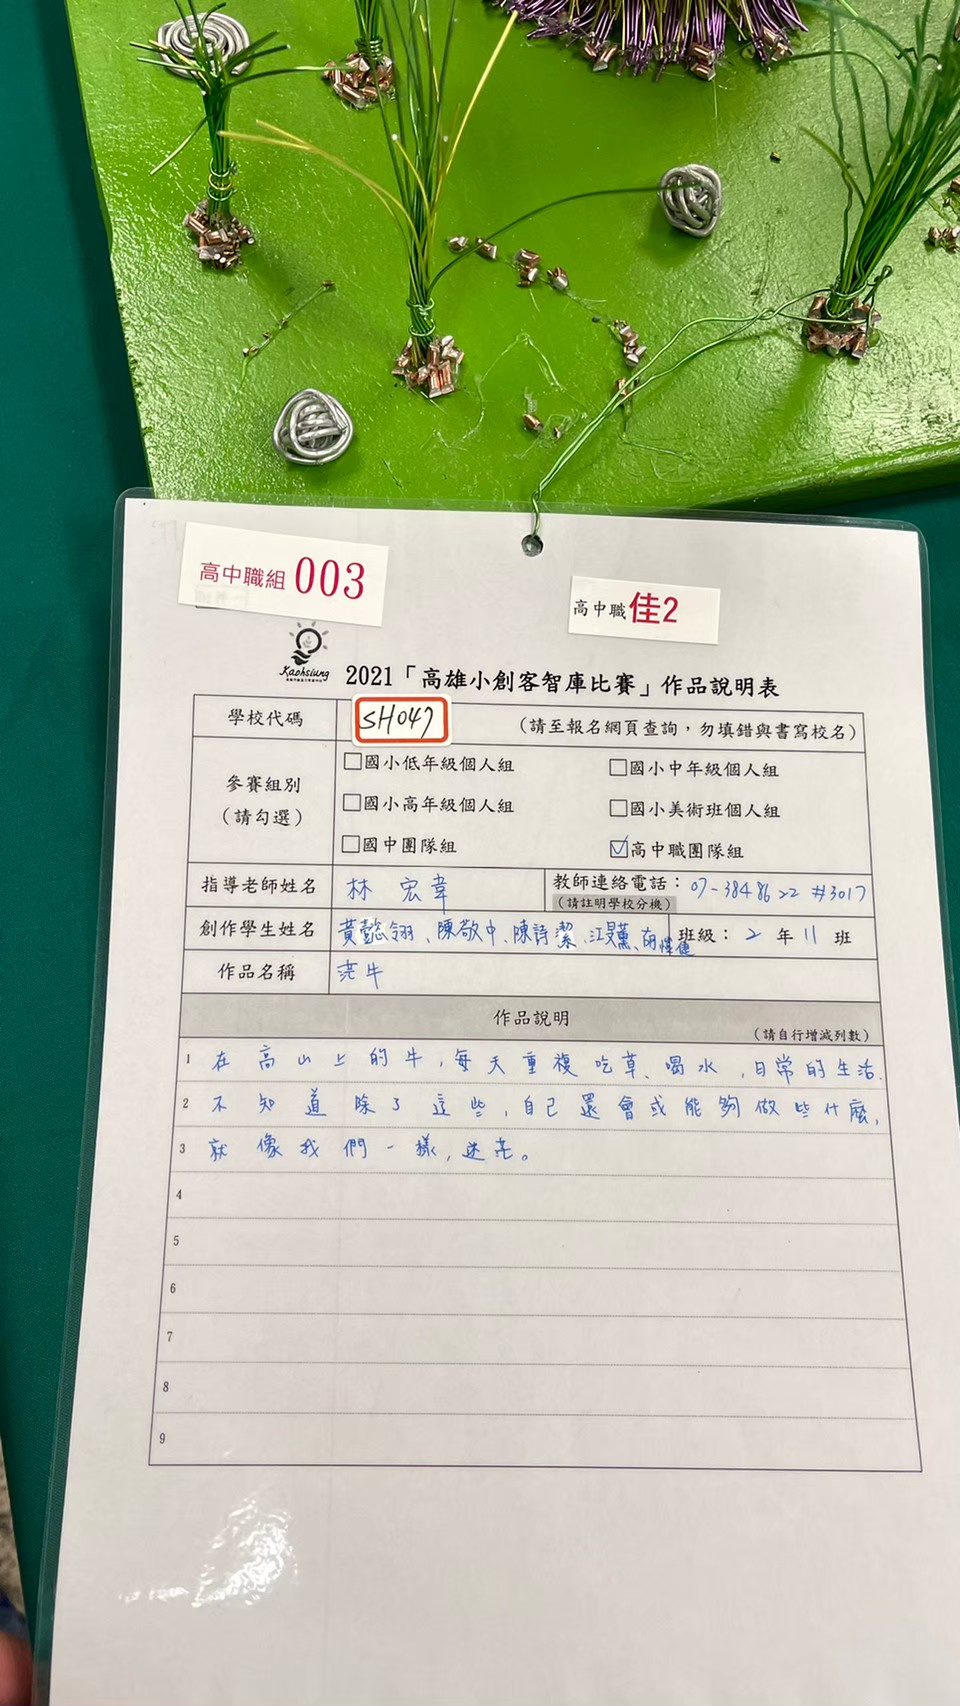 高中職組 003
高中職 佳2
Kaohsiung
2021「高雄小創客智庫比賽」作品說明表
學校代碼 SH047 (請至報名網頁查詢，勿填錯與書寫校名)
參賽組別
(請勾選)
□國小低年級個人組 □國小中年級個人組
□國小高年級個人組 □國小美術班個人組
□國中團隊組 ☑高中職團隊組
指導老師姓名 林宏韋 教師連絡電話：07-3848622 #3017
(請註明學校分機)
創作學生姓名 黃懿翎、陳敬中、陳詩潔、江旻薰、 班級：2年11班
作品名稱 茫牛
作品說明
(請自行增減列數)
1 在高山上的牛，每天重複吃草、喝水，日常的生活，
2 不知道除了這些，自己還會或能夠做些什麼，
3 就像我們一樣，迷茫。
4
5
6
7
8
9